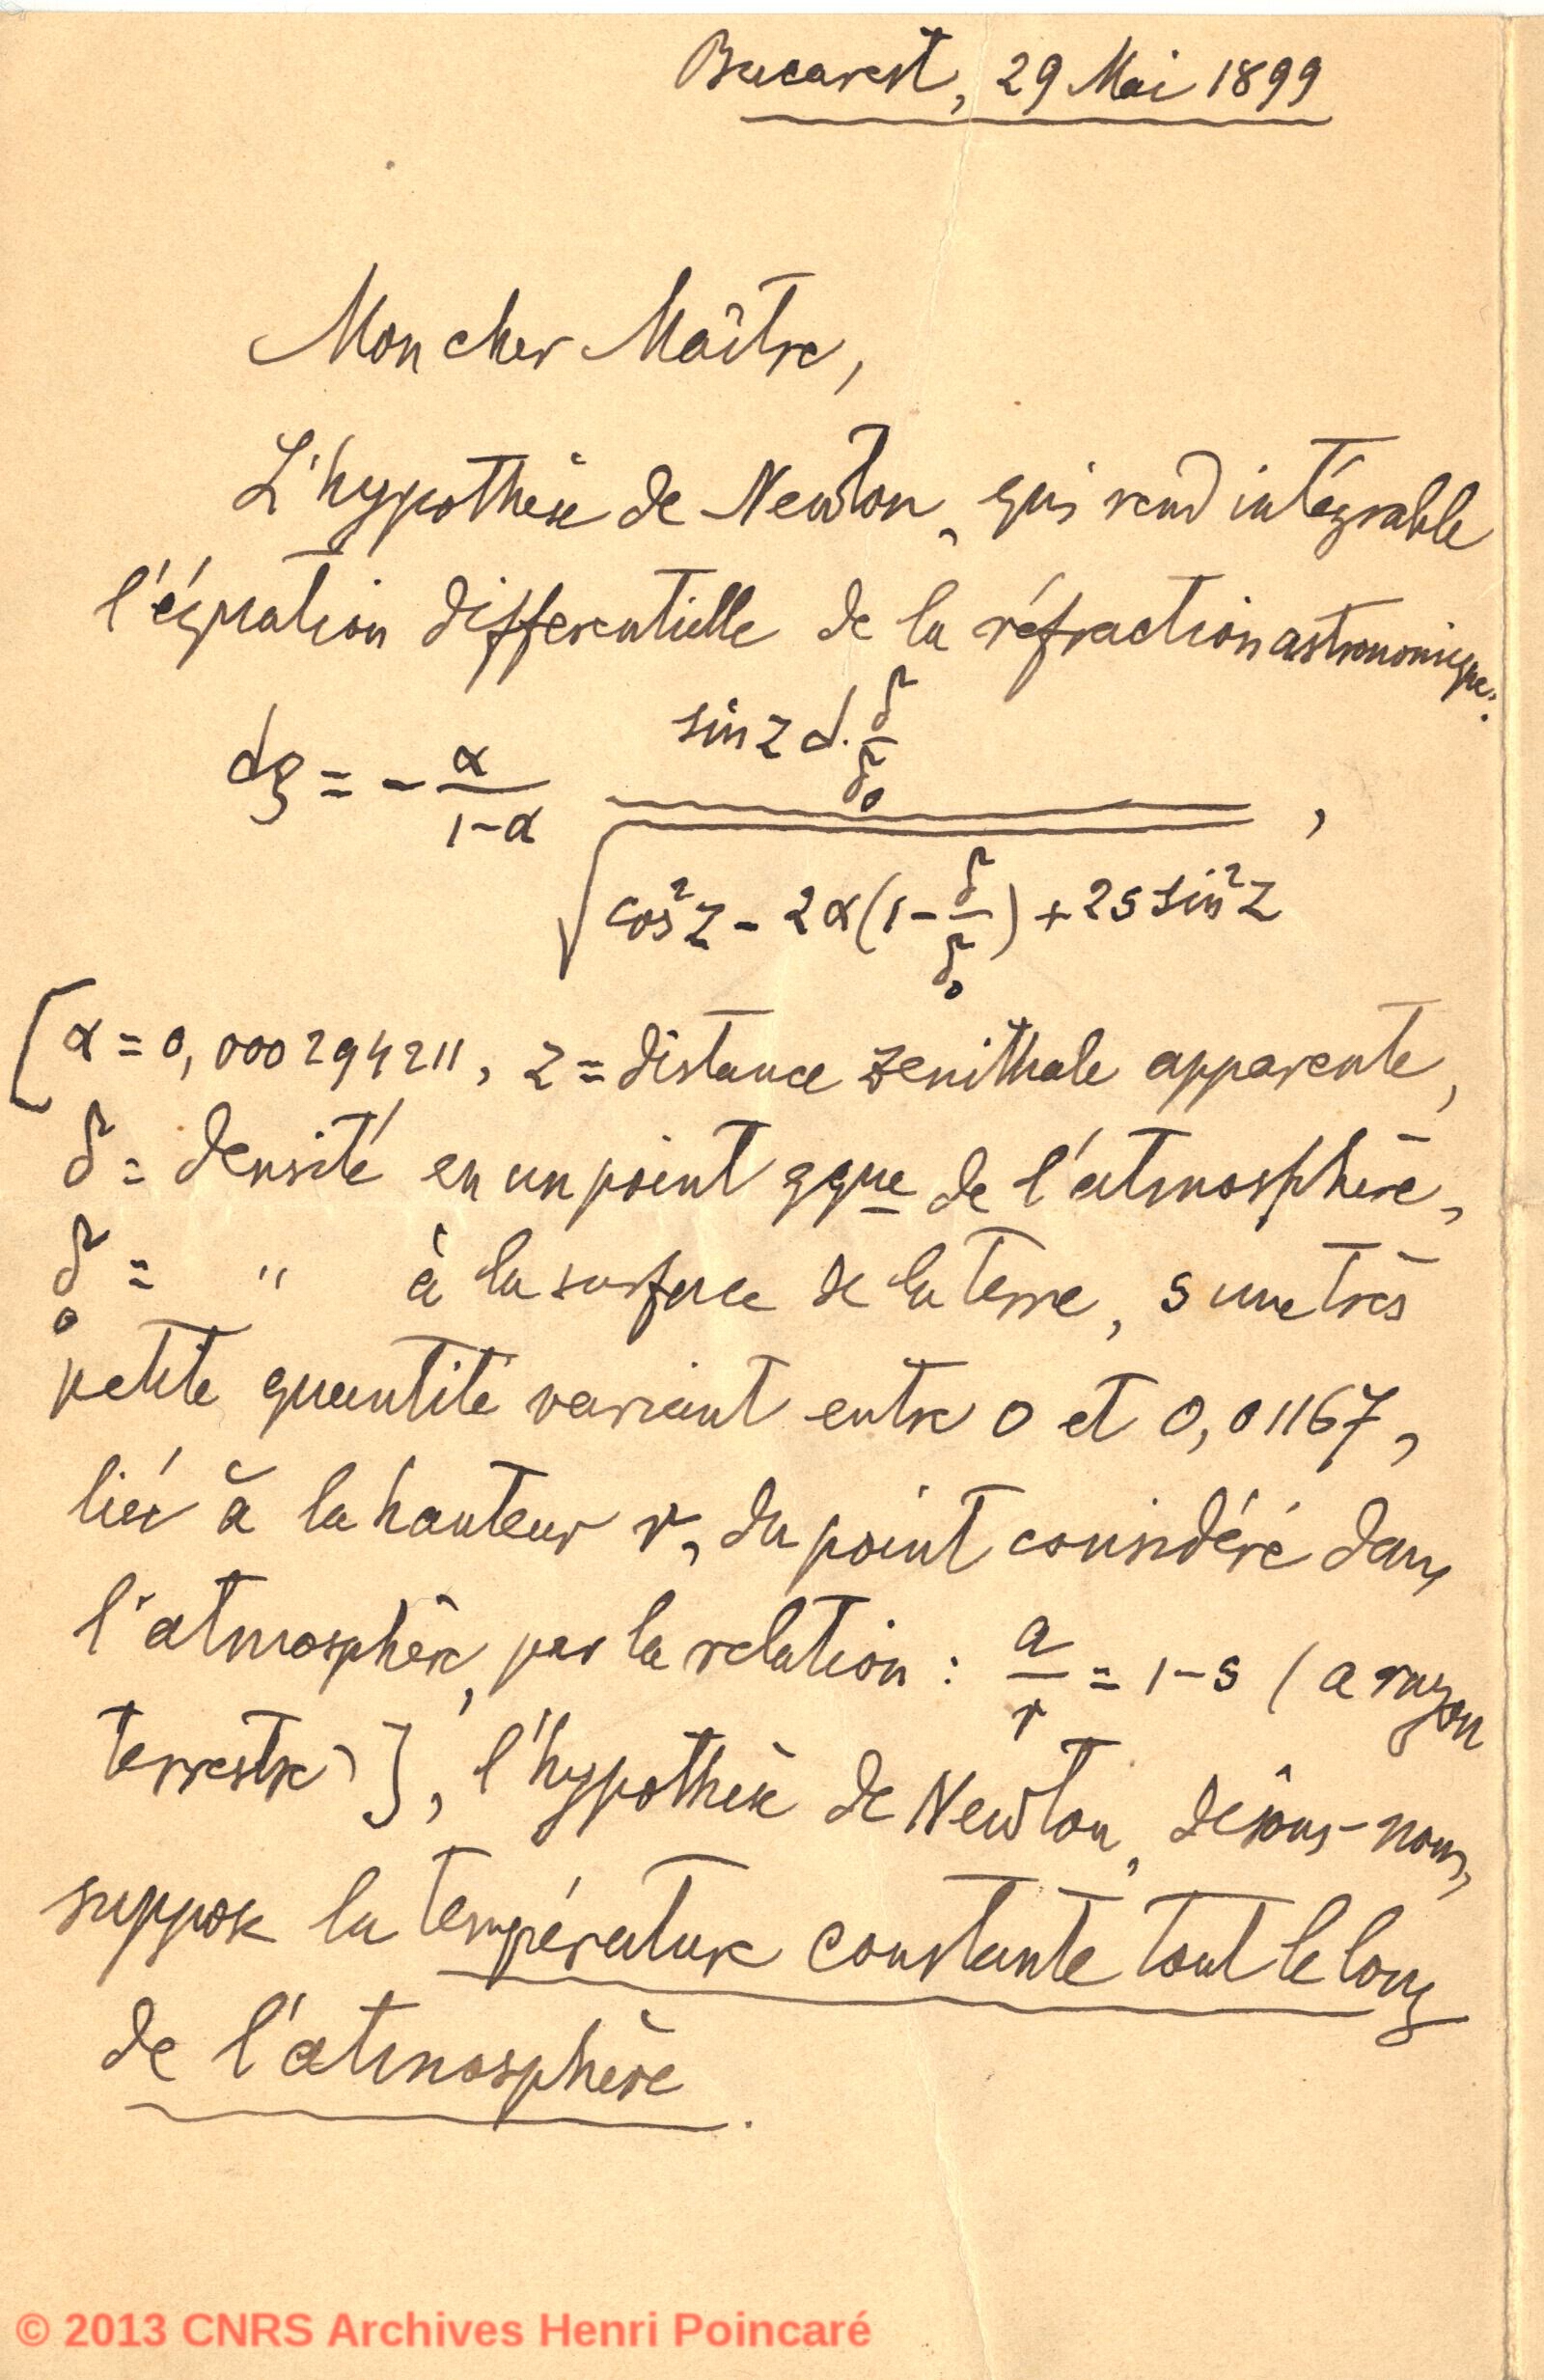 Bucarest, 29 Mai 1899
Mon cher Maître,
L'hypothèse de Newton, qui rend intégrable
l'équation differentielle de la réfraction astronomique:
dζ = - α/(1-α) · sin z d. δ/δ₀ / √(cos²z - 2α(1 - δ/δ₀) + 2s sin²z) ,
[α = 0,000294211, z = distance zenithale apparente,
δ = densité en un point qque de l'atmosphère,
δ₀ = " à la surface de la terre, s une très
petite quantité variant entre 0 et 0,01167,
liée à la hauteur r, du point considéré dans
l'atmosphère, par la relation : a/r = 1-s (a rayon
terrestre)], l'hypothèse de Newton, disons-nous,
suppose la température constante tout le long
de l'atmosphère.
© 2013 CNRS Archives Henri Poincaré